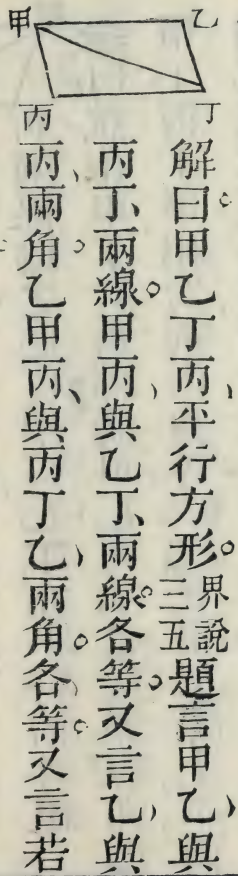 甲
乙
丙
丁
解曰。甲乙丁丙、平行方形。界說三五題言甲乙、與
丙丁、兩線。甲丙、與乙丁、兩線。各等。又言乙、與
丙、兩角。乙甲丙、與丙丁乙、兩角。各等。又言若